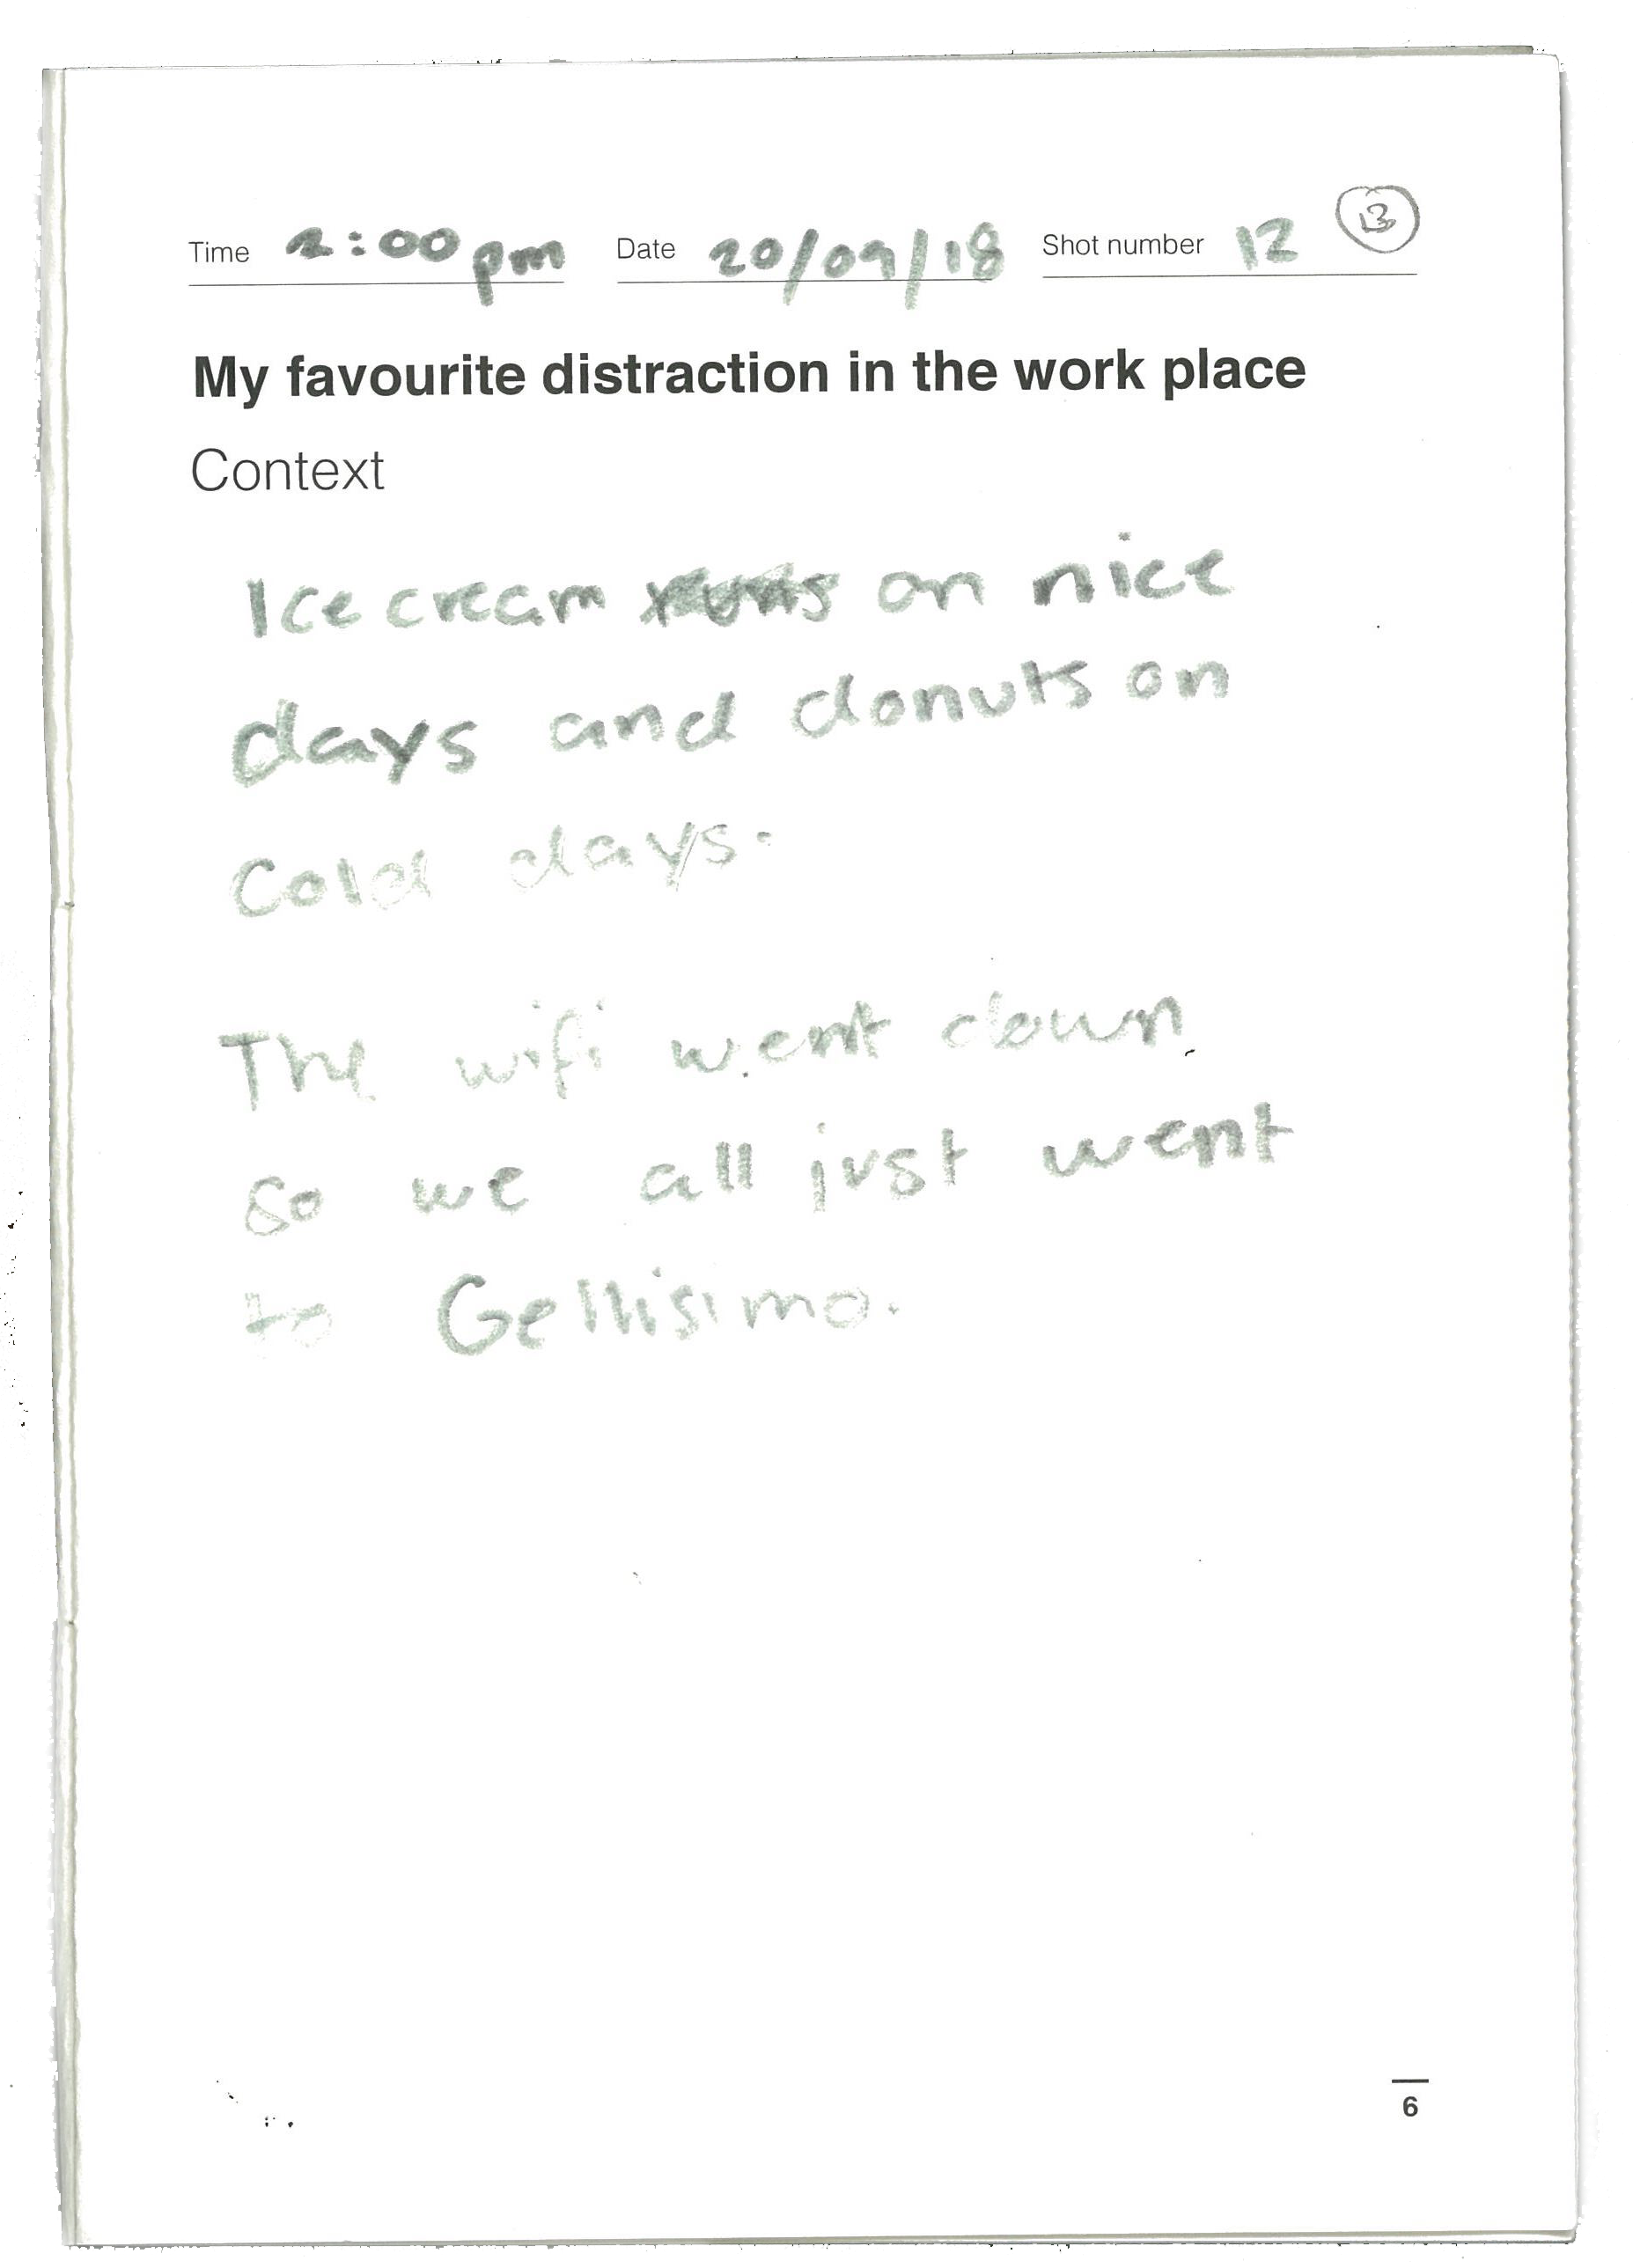 Time 2:00pm Date 20/09/18 Shot number 12 13
My favourite distraction in the work place
Context
Ice cream runs on nice
days and donuts on
Cold days.
The wifi went down
so we all just went
to Gellisimo.
6